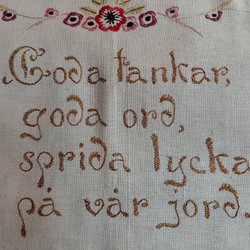 Goda tankar,
goda ord,
sprida lycka
på vår jord.